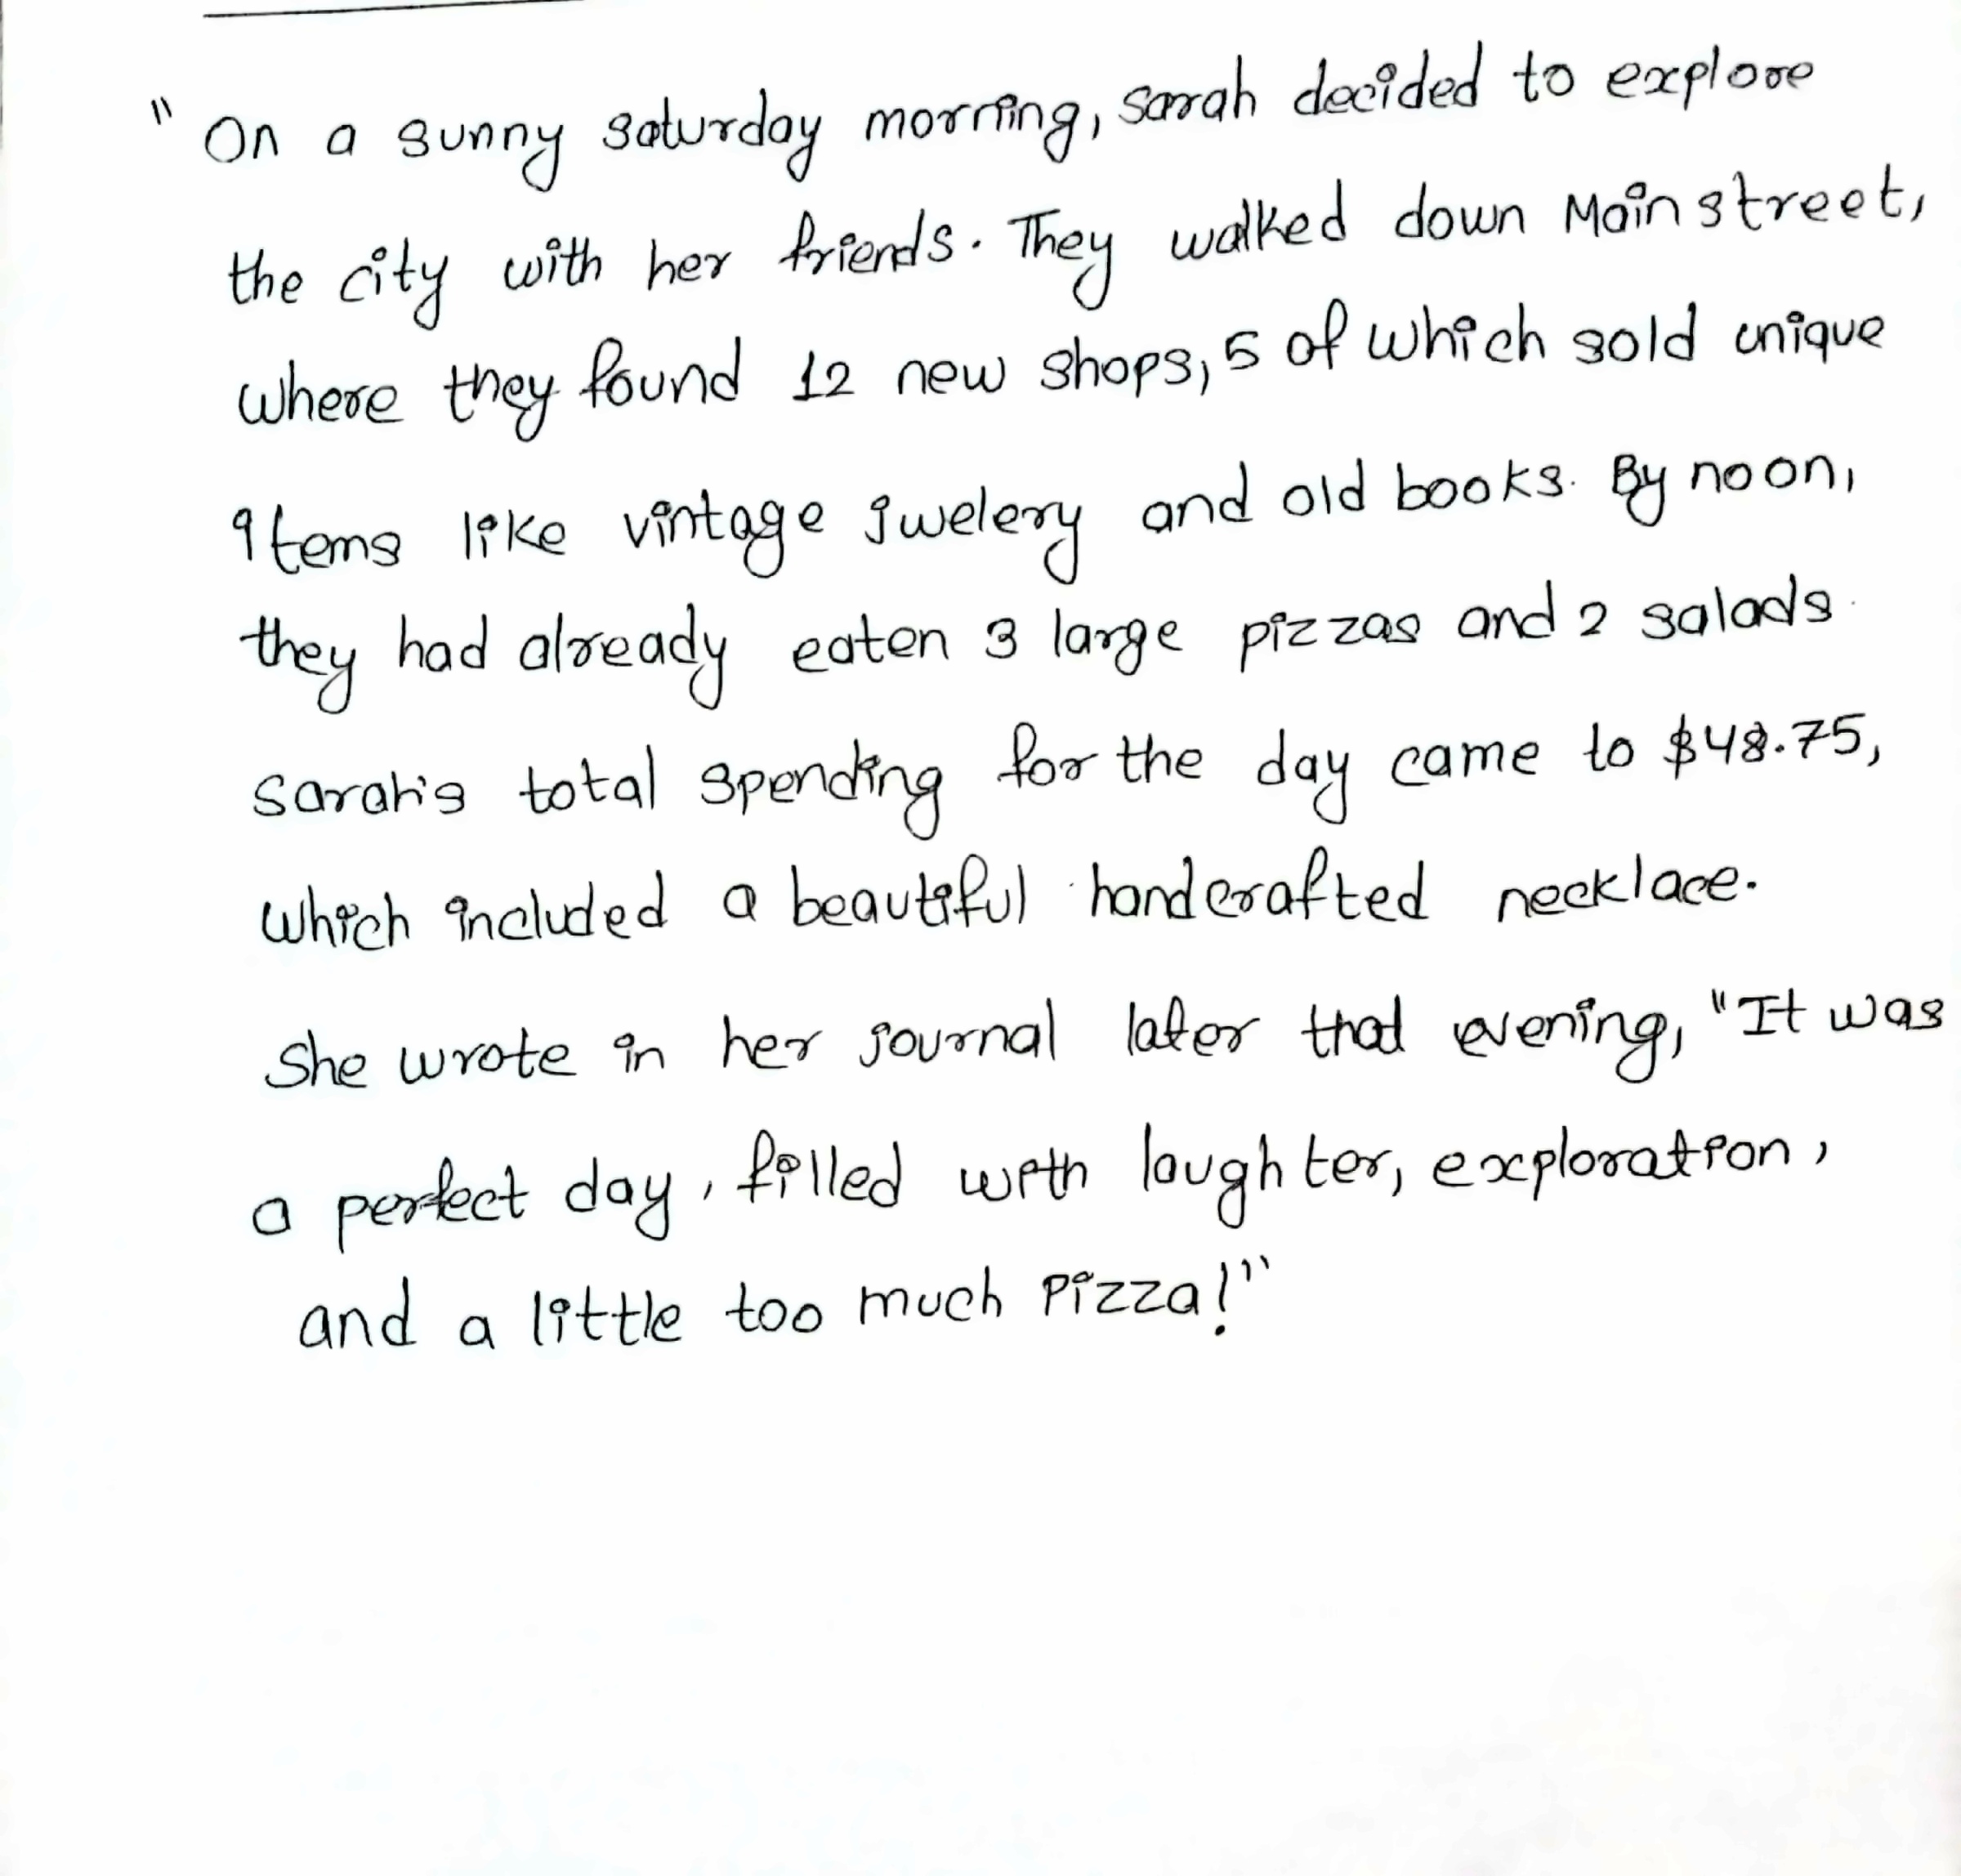 "On a sunny saturday morning, sarah decided to explore
the city with her friends. They walked down Main street,
where they found 12 new shops, 5 of which sold unique
items like vintage jwelery and old books. By noon,
they had already eaten 3 large pizzas and 2 salads.
sarah's total spending for the day came to $48.75,
which included a beautiful handcrafted necklace.
She wrote in her journal later that evening, "It was
a perfect day, filled with laughter, exploration,
and a little too much pizza!"